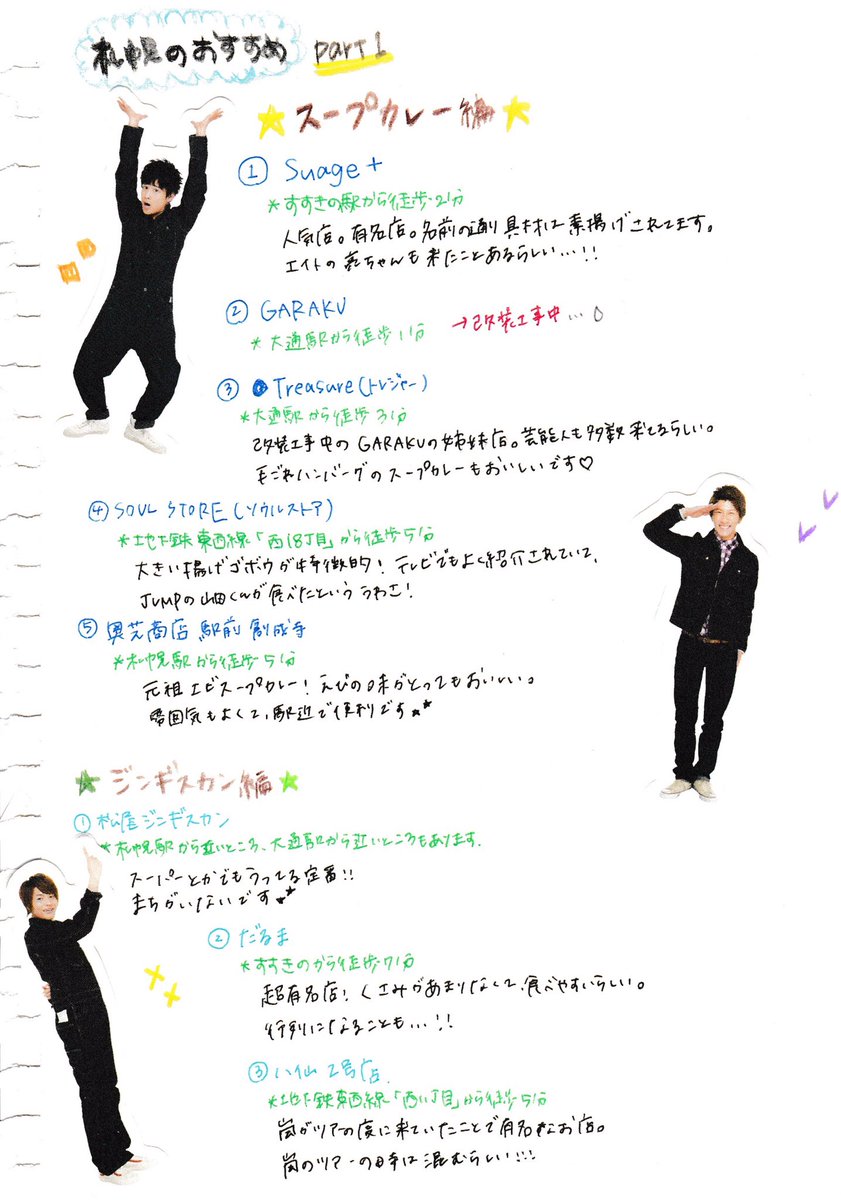 札幌のおすすめ part1
スープカレー編
① Suage+
*すすきの駅から徒歩2分
人気店。有名店。名前の通り具材は素揚げされてます。
エイトの亮ちゃんも来たことあるらしい…!!
② GARAKU
*大通駅から徒歩1分 →改装工事中…
③ Treasure(トレジャー)
*大通駅から徒歩3分
改装工事中のGARAKUの姉妹店。芸能人も多数来てるらしい。
毛ごねハンバーグのスープカレーもおいしいです♡
④ SOUL STORE(ソウルストア)
*地下鉄東西線「西18丁目」から徒歩5分
大きい揚げゴボウが特徴的!テレビでもよく紹介されていて、
JUMPの山田くんが食べたといううわさ!
⑤ 奥芝商店 駅前 創成寺
*札幌駅から徒歩5分
元祖エビスープカレー!えびの味がとってもおいしい。
雰囲気もよくて、駅近で便利です
ジンギスカン編
① 松尾ジンギスカン
*札幌駅から近いところ、大通駅から近いところもあります。
スーパーとかでもうってる定番!!
まちがいないです
② だるま
*すすきのから徒歩7分
超有名店!くさみがあまりなくて、食べやすいらしい。
行列になることも…!!
③ 八仙 2号店
*地下鉄東西線「西11丁目」から徒歩5分
嵐がツアーの度に来ていたことで有名なお店。
嵐のツアーの時は混むらしい!!!